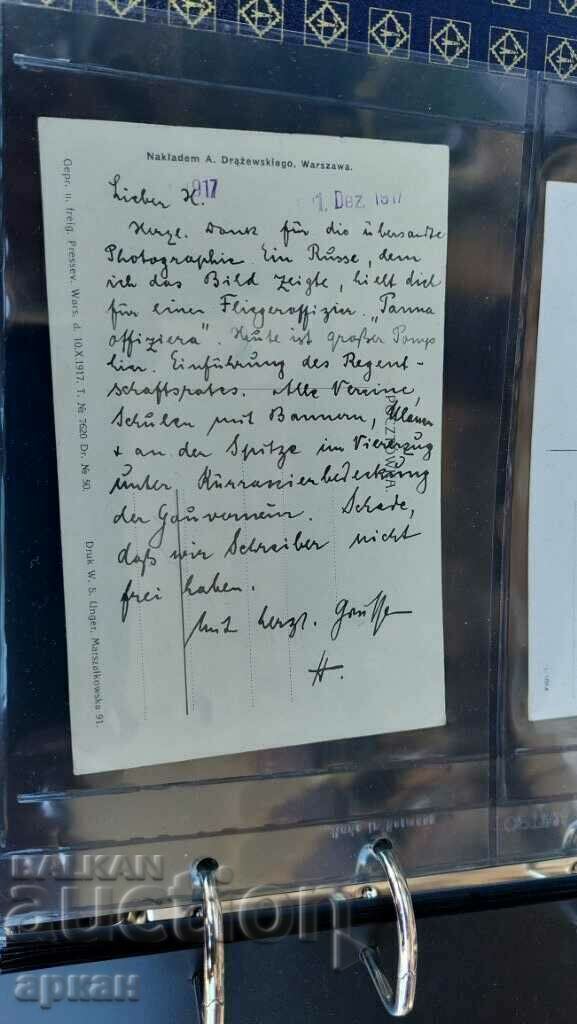 Nakładem A. Drążewskiego, Warszawa.
917
1. Dez. 1917
Lieber H.
Herzl. Dank für die übersandte
Photographie. Ein Russe, dem
ich das Bild zeigte, hielt dich
für einen Fliegeroffizier. „Panna
offiziera". Heute ist großer Pomp
hier. Einführung des Regent-
schaftsrates. Alle Vereine,
Schulen mit Bannern, Ulanen
+ an der Spitze im Viererzug
unter Kürrassierbedeckung
der Gouverneur. Schade,
daß wir Schreiber nicht
frei haben.
Mit herzl. Grüssen
H.
POCZTÓWKA.
Gepr. u. freig. Pressev. Wars. d. 10.X.1917. T. № 7620 Dr. № 50.
Druk W. S. Unger, Marszałkowska 91.
BALKAN
auction
аркан